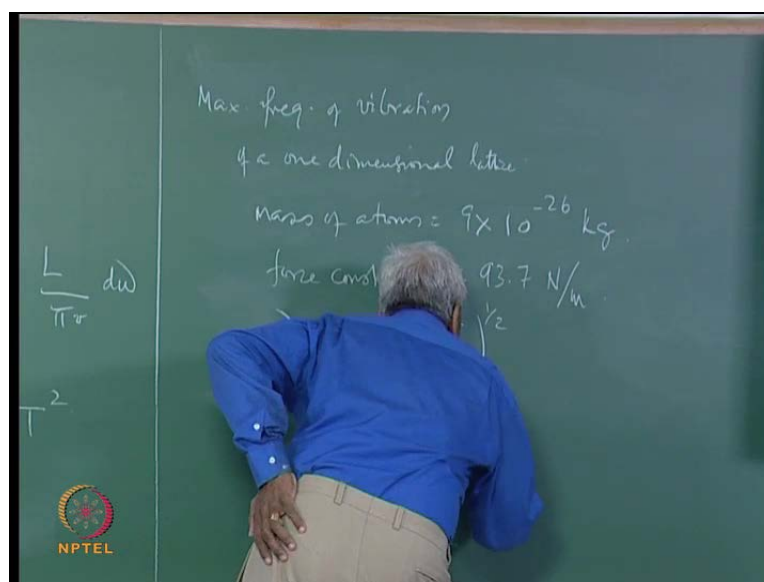 Max. freq. of vibration
of a one dimensional lattice.
mass of atoms = 9 × 10^-26 kg.
force 93.7 N/m.
)^1/2
L/πv dω
T^2
NPTEL